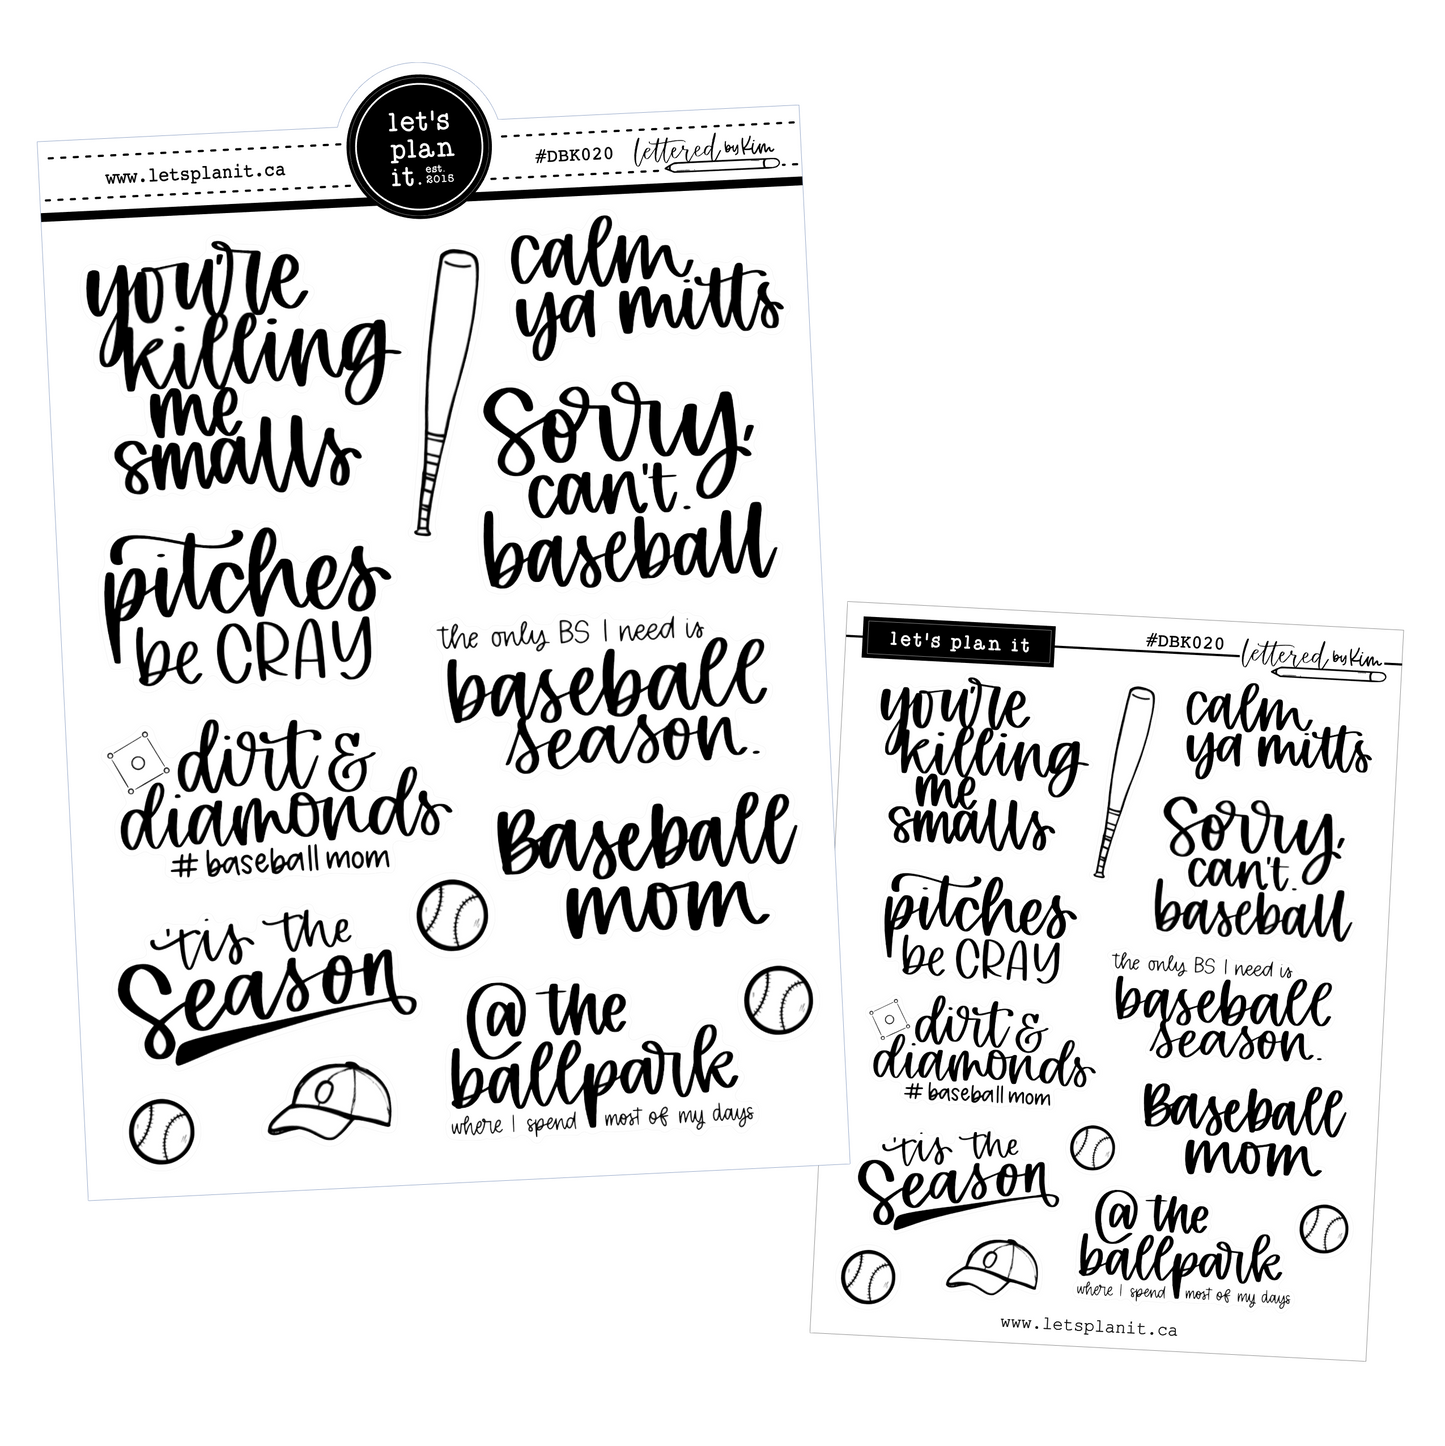 let's
plan
it. est. 2015
www.letsplanit.ca
#DBK020
lettered by Kim
you're
killing
me
smalls
calm
ya mitts
Sorry,
can't.
baseball
pitches
be CRAY
the only BS I need is
baseball
season.
dirt &
diamonds
# baseball mom
Baseball
mom
'tis the
Season
@ the
ballpark
where I spend most of my days
let's plan it
#DBK020
lettered by Kim
you're
killing
me
smalls
calm
ya mitts
Sorry,
can't.
baseball
pitches
be CRAY
the only BS I need is
baseball
season.
dirt &
diamonds
# baseball mom
Baseball
mom
'tis the
Season
@ the
ballpark
where I spend most of my days
www.letsplanit.ca